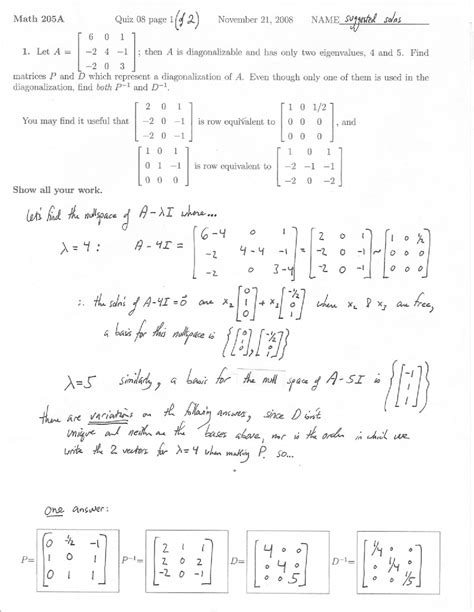 Math 205A Quiz 08 page 1 (of 2) November 21, 2008 NAME suggested solns
1. Let A = [ 6 0 1 ; -2 4 -1 ; -2 0 3 ] ; then A is diagonalizable and has only two eigenvalues, 4 and 5. Find
matrices P and D which represent a diagonalization of A. Even though only one of them is used in the
diagonalization, find both P⁻¹ and D⁻¹.
You may find it useful that [ 2 0 1 ; -2 0 -1 ; -2 0 -1 ] is row equivalent to [ 1 0 1/2 ; 0 0 0 ; 0 0 0 ] , and
[ 1 0 1 ; 0 1 -1 ; 0 0 0 ] is row equivalent to [ 1 0 1 ; -2 -1 -1 ; -2 0 -2 ]
Show all your work.
Let's find the nullspace of A-λI where...
λ=4: A-4I = [ 6-4 0 1 ; -2 4-4 -1 ; -2 0 3-4 ] = [ 2 0 1 ; -2 0 -1 ; -2 0 -1 ] ~ [ 1 0 ½ ; 0 0 0 ; 0 0 0 ]
∴ the solns of A-4I=0 are x₂ [ 0 ; 1 ; 0 ] + x₃ [ -½ ; 0 ; 1 ] where x₂ & x₃ are free,
a basis for this nullspace is { [ 0 ; 1 ; 0 ] , [ -½ ; 0 ; 1 ] }
λ=5 similarly, a basis for the null space of A-5I is { [ -1 ; 1 ; 1 ] }
there are variations on the following answer, since D isn't
unique and neither are the bases above, nor is the order in which we
write the 2 vectors for λ=4 when making P. so...
one answer:
P= [ 0 -½ -1 ; 1 0 1 ; 0 1 1 ] P⁻¹= [ 2 1 1 ; 2 0 2 ; -2 0 -1 ] D= [ 4 0 0 ; 0 4 0 ; 0 0 5 ] D⁻¹= [ ¼ 0 0 ; 0 ¼ 0 ; 0 0 ⅕ ]